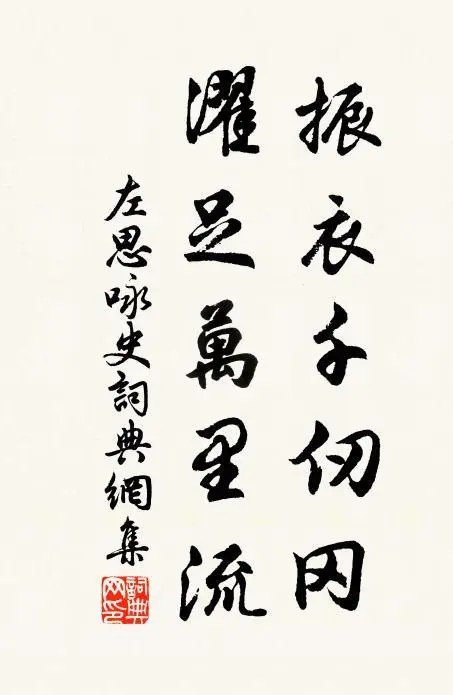 振衣千仞冈
濯足萬里流
左思咏史詞典網集